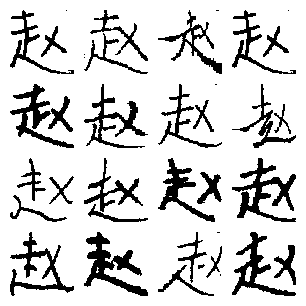 赵赵赵赵
赵赵赵赵
赵赵赵赵
赵赵赵赵